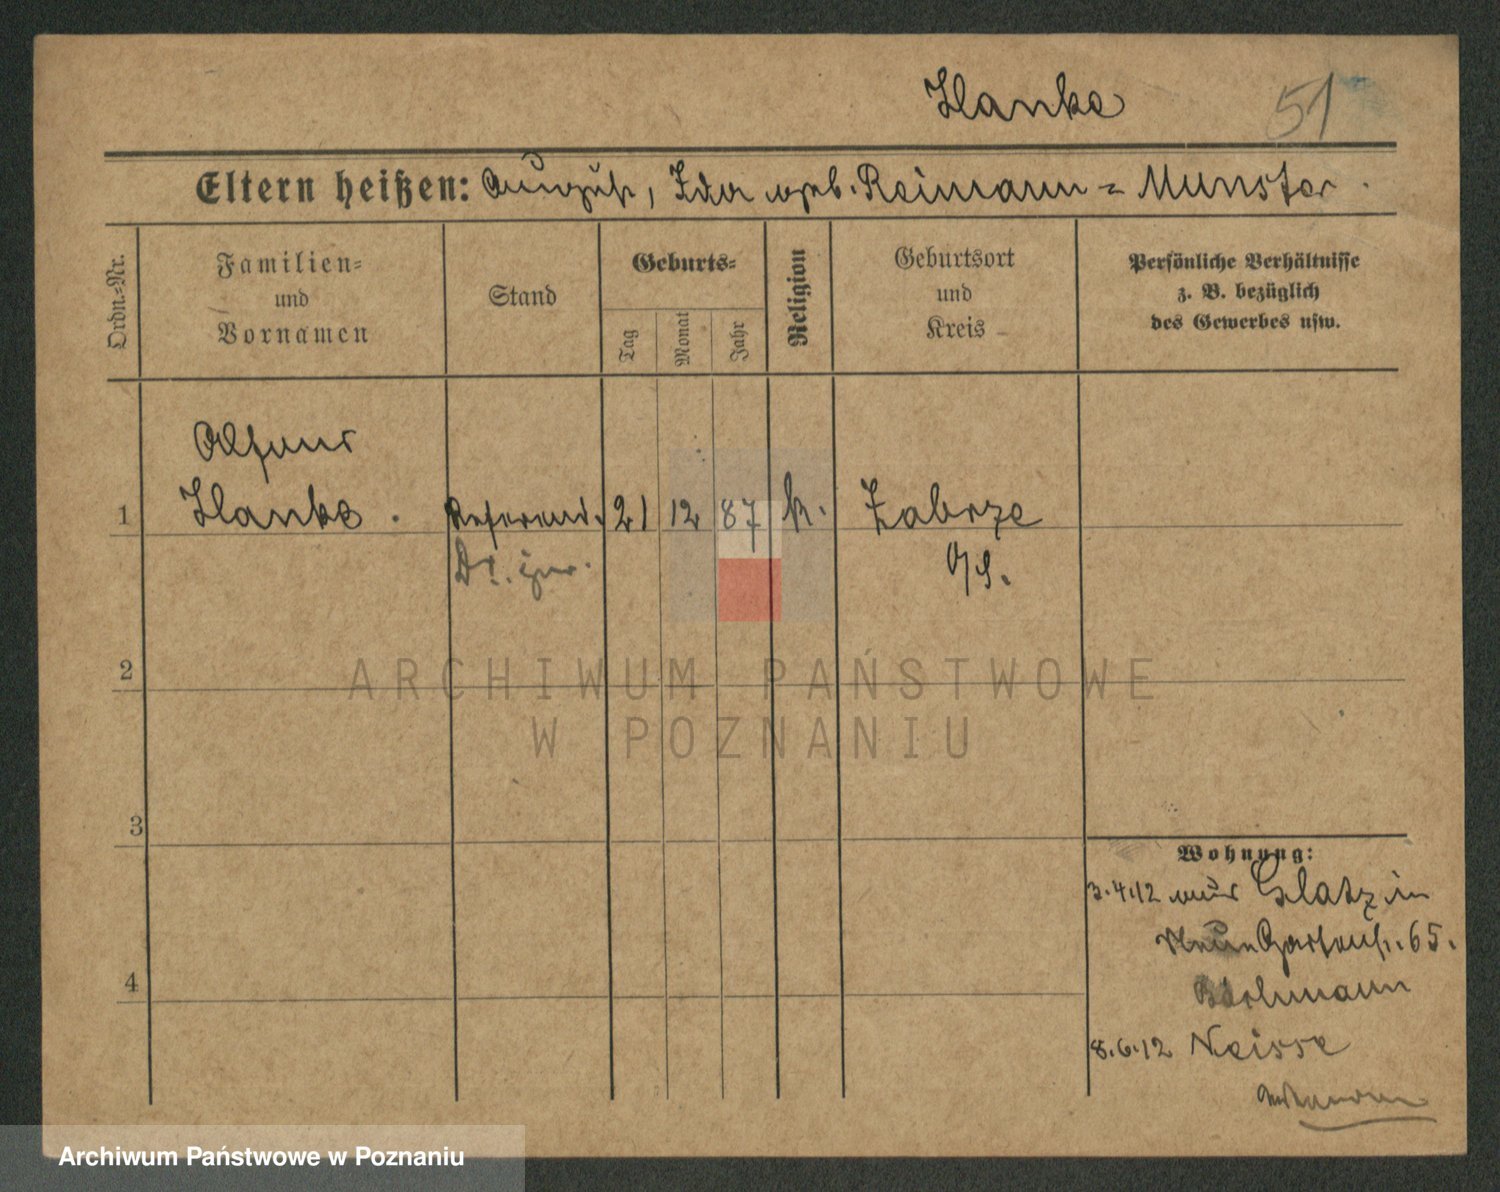 Hanke 51
Eltern heißen: August, Ida geb. Reimann = Munster.
Ordn.=Nr.
Familien=
und
Vornamen
Stand
Geburts=
Tag
Monat
Jahr
Religion
Geburtsort
und
Kreis
Persönliche Verhältnisse
z. B. bezüglich
des Gewerbes usw.
Alfons
1 Hanke. Referend. 21 12 87 k. Zabrze
Dr. jur. O/S.
2
3
4
Wohnung:
3.4.12 aus Glatz in
Neue Gartenstr. 65.
8.6.12 Neisse
ARCHIWUM PAŃSTWOWE
W POZNANIU
Archiwum Państwowe w Poznaniu